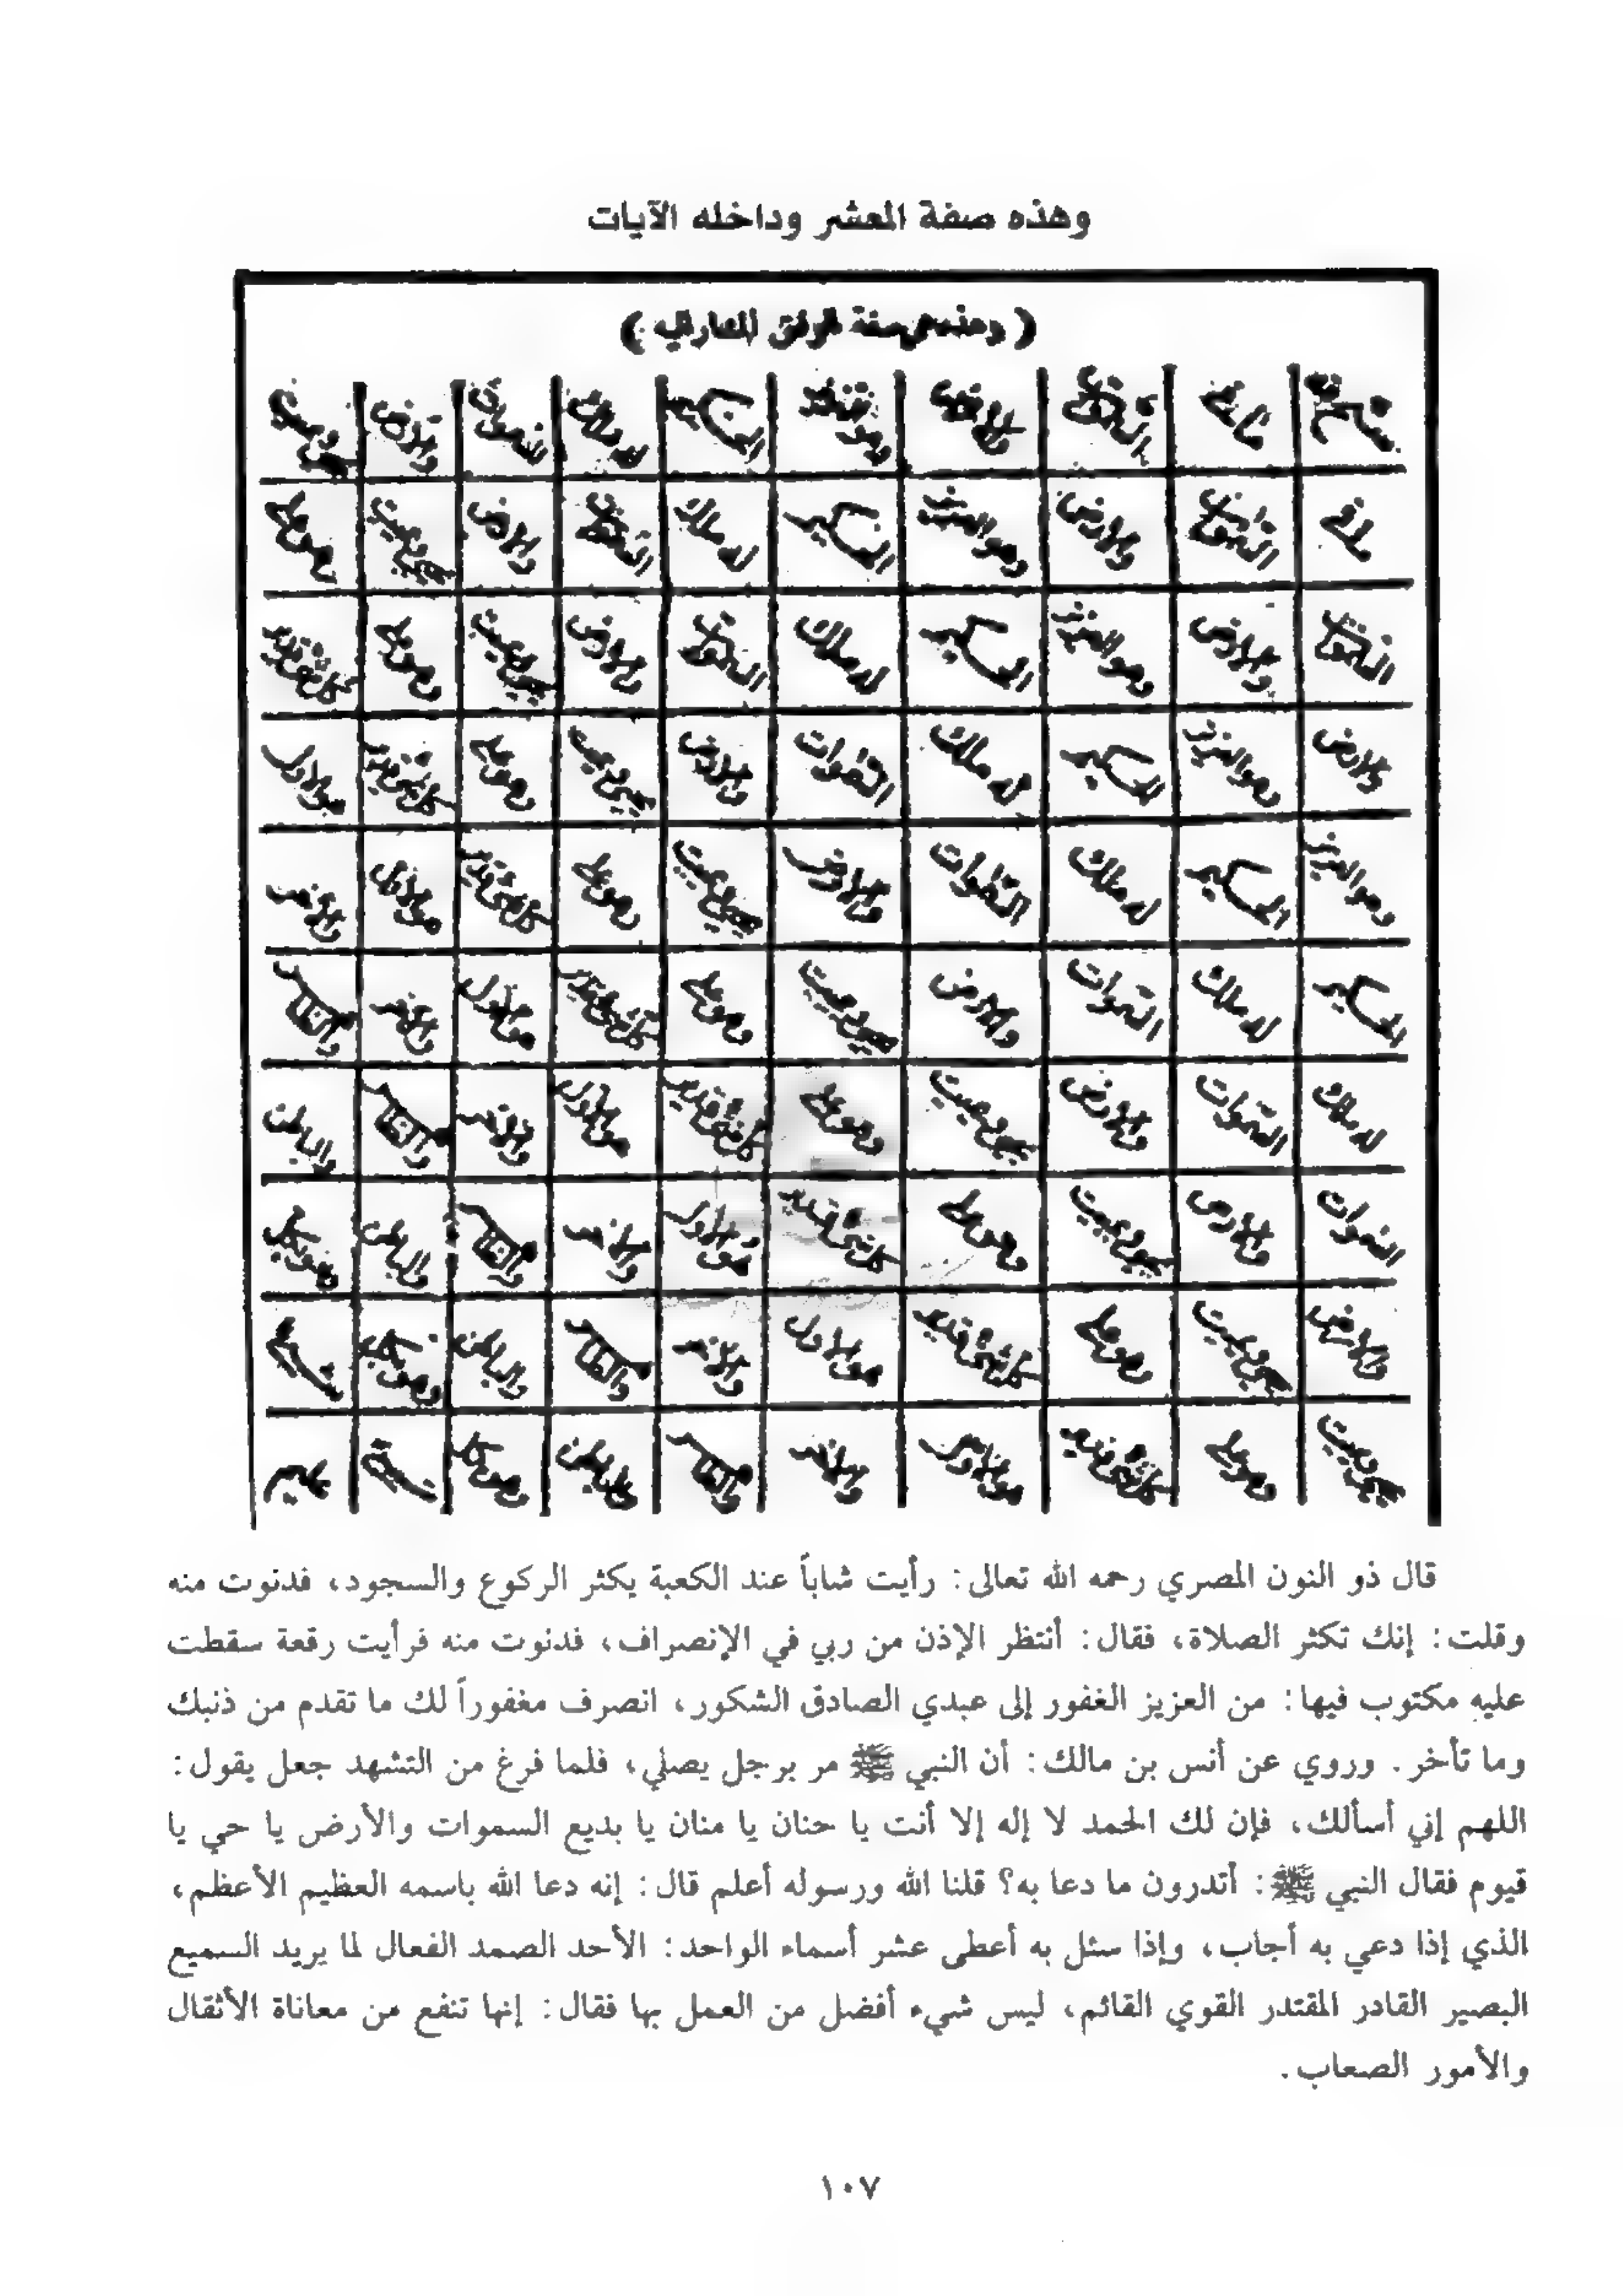 وهذه صفة المعشر وداخله الآيات
ما في السموات والأرض وهو العزيز الحكيم له ملك السموات والأرض يحيي ويميت
ما في السموات والأرض وهو العزيز الحكيم له ملك السموات والأرض يحيي ويميت وهو على
السموات والأرض وهو العزيز الحكيم له ملك السموات والأرض يحيي ويميت وهو على كل شيء قدير
والأرض وهو العزيز الحكيم له ملك السموات والأرض يحيي ويميت وهو على كل شيء قدير هو الأول
وهو العزيز الحكيم له ملك السموات والأرض يحيي ويميت وهو على كل شيء قدير هو الأول والآخر
الحكيم له ملك السموات والأرض يحيي ويميت وهو على كل شيء قدير هو الأول والآخر والظاهر
له ملك السموات والأرض يحيي ويميت وهو على كل شيء قدير هو الأول والآخر والظاهر والباطن
السموات والأرض يحيي ويميت وهو على كل شيء قدير هو الأول والآخر والظاهر والباطن وهو بكل
والأرض يحيي ويميت وهو على كل شيء قدير هو الأول والآخر والظاهر والباطن وهو بكل شيء
يحيي ويميت وهو على كل شيء قدير هو الأول والآخر والظاهر والباطن وهو بكل شيء عليم
قال ذو النون المصري رحمه الله تعالى: رأيت شاباً عند الكعبة يكثر الركوع والسجود، فدنوت منه
وقلت: إنك تكثر الصلاة، فقال: أنتظر الإذن من ربي في الإنصراف، فدنوت منه فرأيت رقعة سقطت
عليه مكتوب فيها: من العزيز الغفور إلى عبدي الصادق الشكور، انصرف مغفوراً لك ما تقدم من ذنبك
وما تأخر. وروي عن أنس بن مالك: أن النبي ﷺ مر برجل يصلي، فلما فرغ من التشهد جعل يقول:
اللهم إني أسألك، فإن لك الحمد لا إله إلا أنت يا حنان يا منان يا بديع السموات والأرض يا حي يا
قيوم فقال النبي ﷺ: أتدرون ما دعا به؟ قلنا الله ورسوله أعلم قال: إنه دعا الله باسمه العظيم الأعظم،
الذي إذا دعي به أجاب، وإذا سئل به أعطى عشر أسماء الواحد: الأحد الصمد الفعال لما يريد السميع
البصير القادر المقتدر القوي القائم، ليس شيء أفضل من العمل بها فقال: إنها تنفع من معاناة الأثقال
والأمور الصعاب.
١٠٧